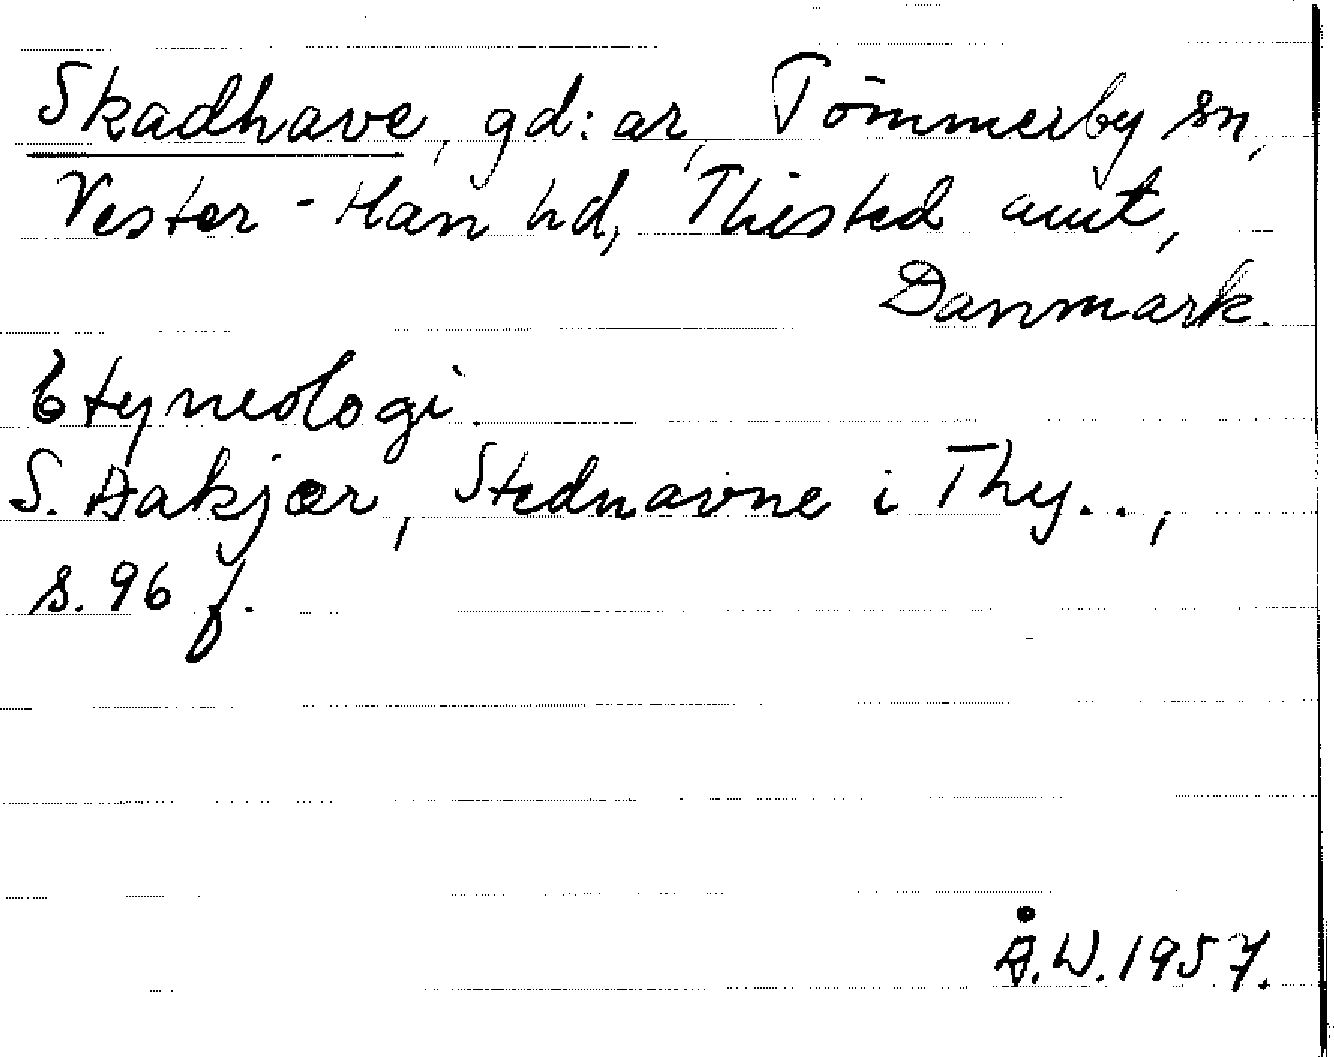 Skadhave, gd:ar, Tömmerby sn,
Vester-Han hd, Thisted amt,
Danmark.
Etymologi.
S. Aakjær, Stednavne i Thy..,
s. 96 f.
Å.W. 1957.